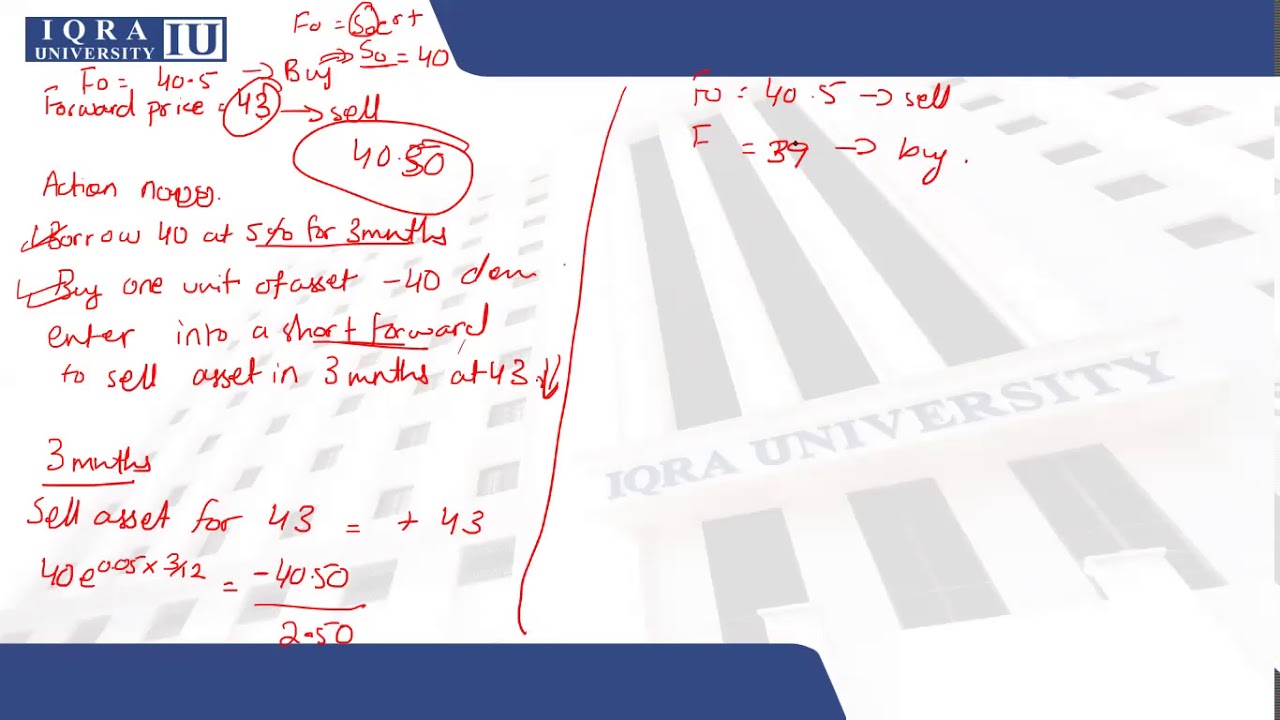 IQRA
UNIVERSITY IU
Fo = Soe^rt
So = 40
Fo = 40.5 → Buy
Forward price = 43 → sell
40.50
Action now
Borrow 40 at 5% for 3 mnths
Buy one unit of asset -40
enter into a short forward
to sell asset in 3 mnths at 43.
3 mnths
Sell asset for 43 = + 43
40e^0.05 x 3/12 = - 40.50
2.50
Fo = 40.5 → sell
F = 39 → buy.
IQRA UNIVERSITY